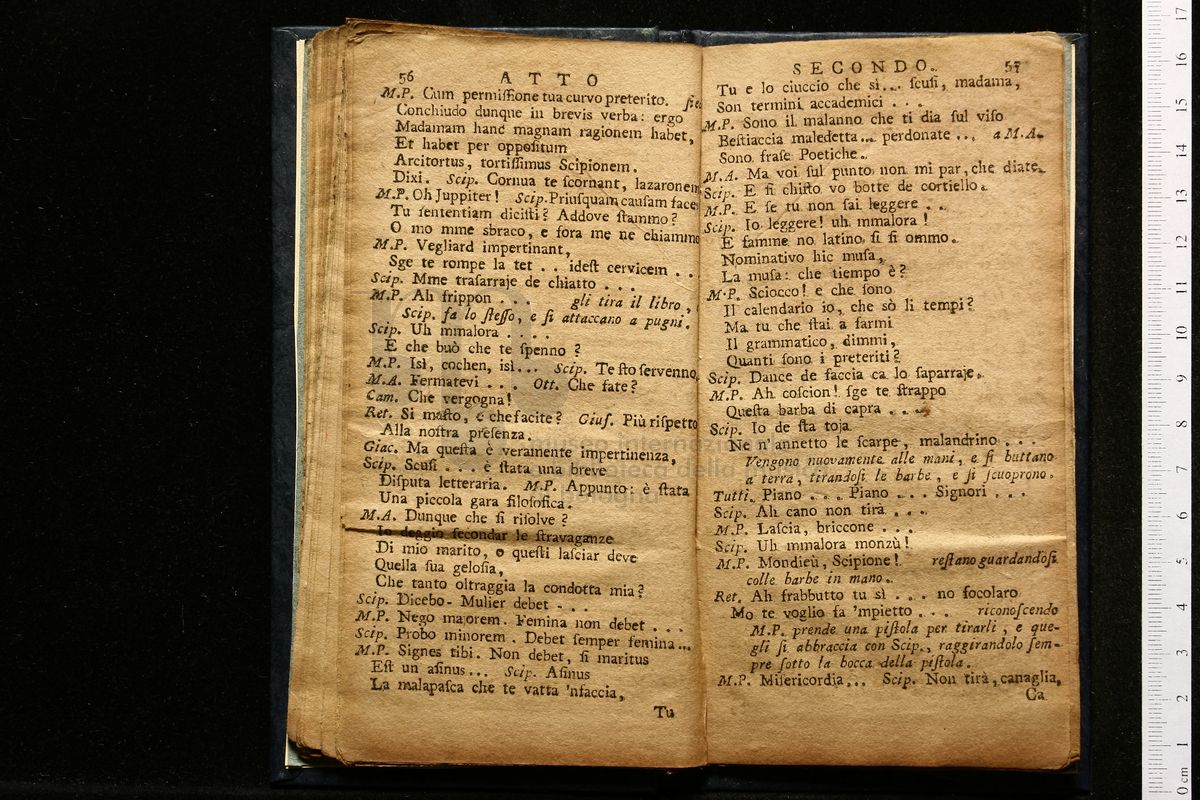 56 ATTO
M.P. Cum permiſſione tua curvo preterito. ſie
Conchiudo dunque in brevis verba: ergo
Madamam hanc magnam ragionem habet,
Et habet per oppoſitum
Arcitortus, tortiſſimus Scipionem.
Dixi. Scip. Cornua te ſcornant, lazaronem
M.P. Oh Juppiter! Scip. Priuſquam cauſam faces
Tu ſententiam diciſti? Addove ſtammo?
O mo mme sbraco, e fora me ne chiammo
M.P. Vegliard impertinant,
Sge te rompe la tet . . ideſt cervicem . .
Scip. Mme traſarraje de chiatto . . .
M.P. Ah frippon . . . gli tira il libro,
Scip. fa lo ſteſſo, e ſi attaccano a pugni.
Scip. Uh mmalora . . . .
E che buò che te ſpenno ?
M.P. Isì, cochen, isì... Scip. Te ſto ſervenno.
M.A. Fermatevi . . . Ott. Che fate?
Cam. Che vergogna!
Ret. Si maſto, e che facite? Giuſ. Più riſpetto
Alla noſtra preſenza.
Giac. Ma queſta è veramente impertinenza,
Scip. Scuſi . . . è ſtata una breve
Diſputa letteraria. M.P. Appunto: è ſtata
Una piccola gara filoſofica.
M.A. Dunque che ſi riſolve ?
Io deggio ſecondar le ſtravaganze
Di mio marito, o queſti laſciar deve
Quella ſua geloſia,
Che tanto oltraggia la condotta mia?
Scip. Dicebo- Mulier debet . . .
M.P. Nego majorem. Femina non debet . . .
Scip. Probo minorem . Debet ſemper femina...
M.P. Signes tibi. Non debet, ſi maritus
Eſt un aſinus... Scip. Aſinus
La malapaſca che te vatta 'nfaccia,
Tu
SECONDO. 57
Tu e lo ciuccio che sì... ſcuſi, madama,
Son termini accademici . . .
M.P. Sono il malanno che ti dia ſul viſo
Beſtiaccia maledetta... perdonate ... a M.A.
Sono fraſe Poetiche.
M.A. Ma voi ſul punto non mi par, che diate.
Scip. E ſi chiſto vo botte de cortiello.
M.P. E ſe tu non ſai leggere . .
Scip. Io leggere! uh mmalora !
E famme no latino, ſi ſi ommo.
Nominativo hic muſa,
La muſa: che tiempo è?
M.P. Sciocco! e che ſono
Il calendario io, che sò li tempi?
Ma tu che ſtai a farmi
Il grammatico, dimmi,
Quanti ſono i preteriti?
Scip. Dance de faccia ca lo ſaparraje.
M.P. Ah coſcion! ſge te ſtrappo
Queſta barba di capra . . .
Scip. Io de ſta toja
Ne n'annetto le ſcarpe, malandrino . . .
Vengono nuovamente alle mani, e ſi buttano
a terra, tirandoſi le barbe, e ſi ſcuoprono.
Tutti. Piano . . . Piano . . . Signori . . .
Scip. Ah cano non tirà . . .
M.P. Laſcia, briccone . . .
Scip. Uh mmalora monzù!
M.P. Mondieù, Scipione! reſtano guardandoſi
colle barbe in mano.
Ret. Ah frabbutto tu sì . . . no focolaro
Mo te voglio fa 'mpietto . . . riconoſcendo
M.P. prende una piſtola per tirarli, e que-
gli ſi abbraccia con Scip., raggirandolo ſem-
pre ſotto la bocca della piſtola.
M.P. Miſericordia... Scip. Non tirà, canaglia,
Ca